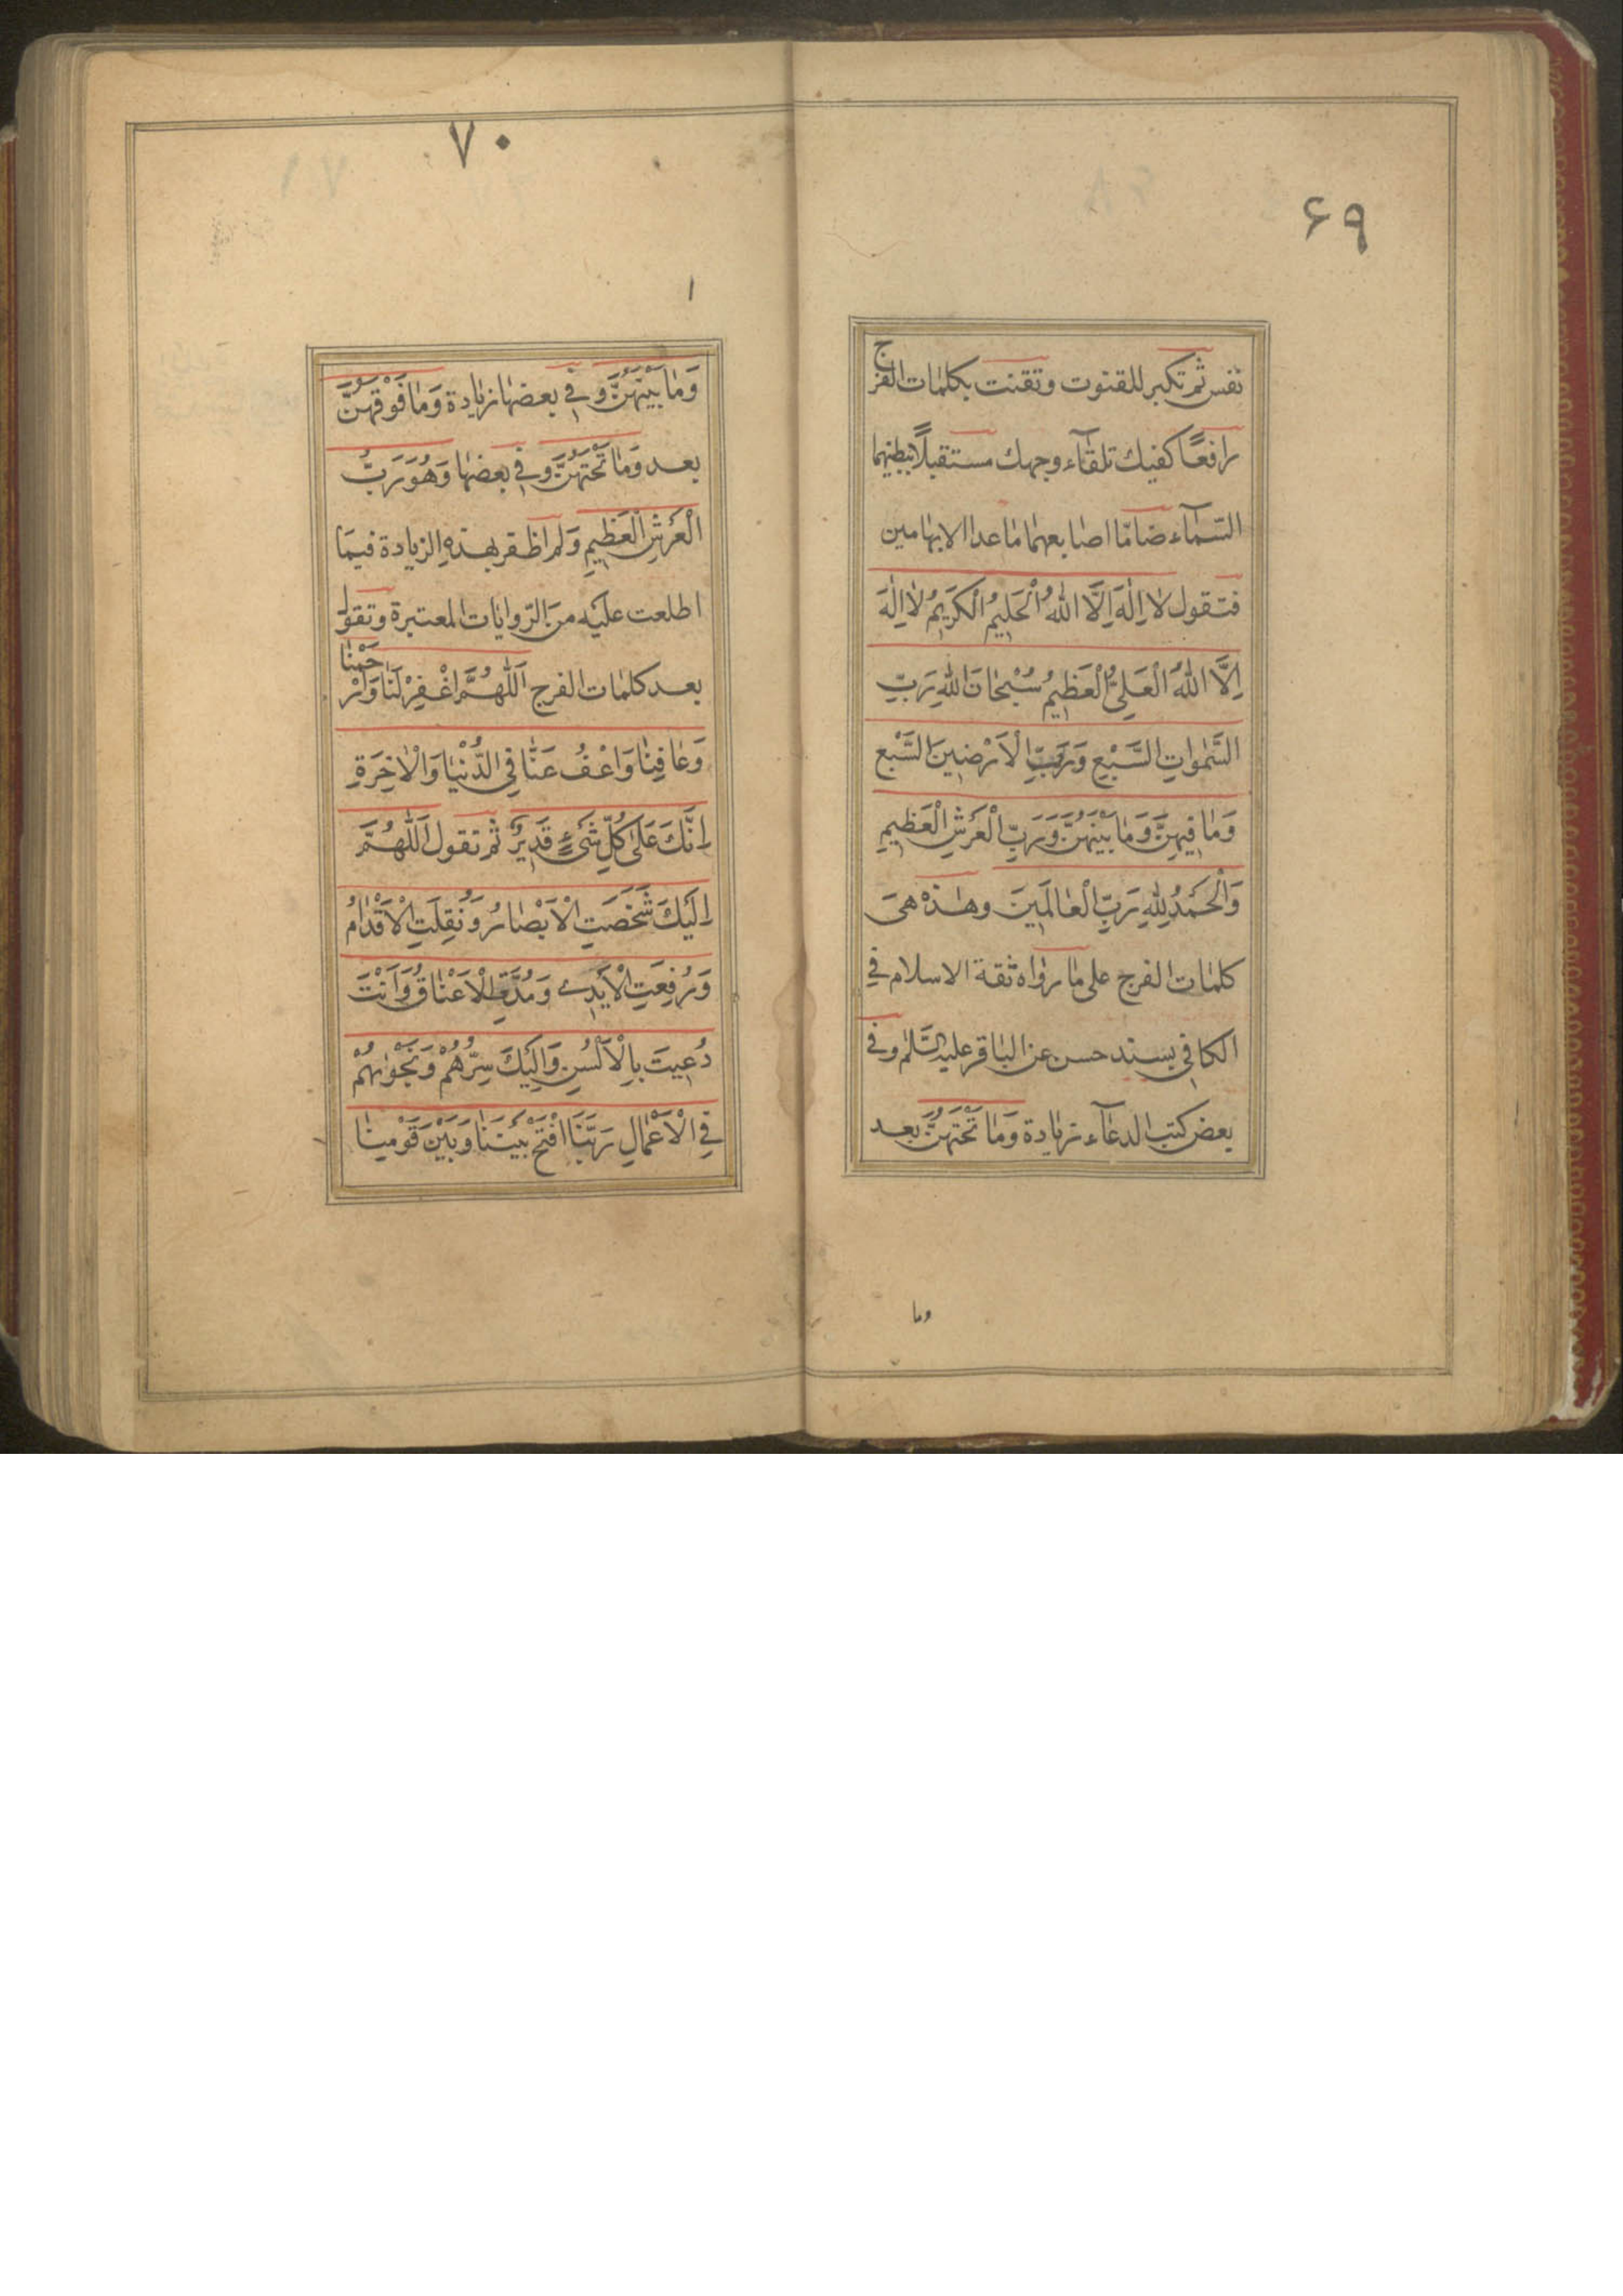 ۶۹
نفس ثم تكبر للقنوت وتقنت بكلمات الفرج
رافعًا كفيك تلقآء وجهك مستقبلًا ببطنهما
السّمآء ضامّا اصابعهما ما عدا الابهامين
فتقول لا اِلٰهَ اِلَّا اللهُ الْحَليمُ الْكَريمُ لا اِلٰهَ
اِلَّا اللهُ الْعَلِىُّ الْعَظيمُ سُبْحانَ اللهِ رَبِّ
السَّمٰواتِ السَّبْعِ وَرَبِّ الْاَرْضينَ السَّبْعِ
وَما فيهِنَّ وَما بَيْنَهُنَّ وَرَبِّ الْعَرْشِ الْعَظيمِ
وَالْحَمْدُ لِلّٰهِ رَبِّ الْعالَمينَ وهذه هىَ
كلمات الفرج على ما رواه ثقة الاسلام فى
الكافى بسند حسن عن الباقر عليه السّلام وفى
بعض كتب الدعآء زيادة وَما تَحْتَهُنَّ بعد
وما
۷۰
۱
وَما بَيْنَهُنَّ وفى بعضها زيادة وَما فَوْقَهُنَّ
بعد وَما تَحْتَهُنَّ وفى بعضها وَهُوَ رَبُّ
الْعَرْشِ الْعَظيمِ وَلم اظفر بهذهِ الزيادة فيمَا
اطلعت عليه منَ الرّوايات المعتبرة وتقول
بعد كلمات الفرج اَللّٰهُمَّ اغْفِرْ لَنا وَارْحَمْنا
وَعافِنا وَاعْفُ عَنّا فِى الدُّنْيا وَالْاٰخِرَةِ
اِنَّكَ عَلىٰ كُلِّ شَىْءٍ قَديرٌ ثم تقول اَللّٰهُمَّ
اِلَيْكَ شَخَصَتِ الْاَبْصارُ وَنُقِلَتِ الْاَقْدامُ
وَرُفِعَتِ الْاَيْدى وَمُدَّتِ الْاَعْناقُ وَاَنْتَ
دُعيتَ بِالْاَلْسُنِ وَاِلَيْكَ سِرُّهُمْ وَنَجْوٰيهُمْ
فِى الْاَعْمالِ رَبَّنَا افْتَحْ بَيْنَنا وَبَيْنَ قَوْمِنا